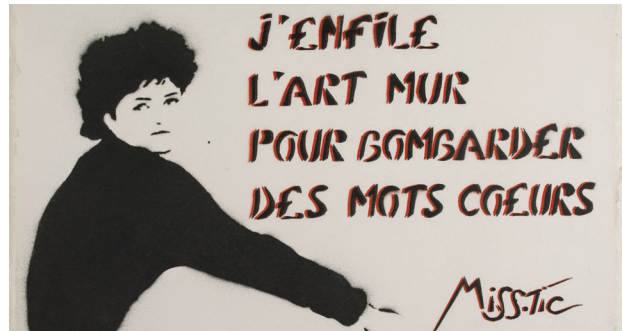 J'ENFILE
L'ART MUR
POUR BOMBARDER
DES MOTS COEURS
Miss.Tic